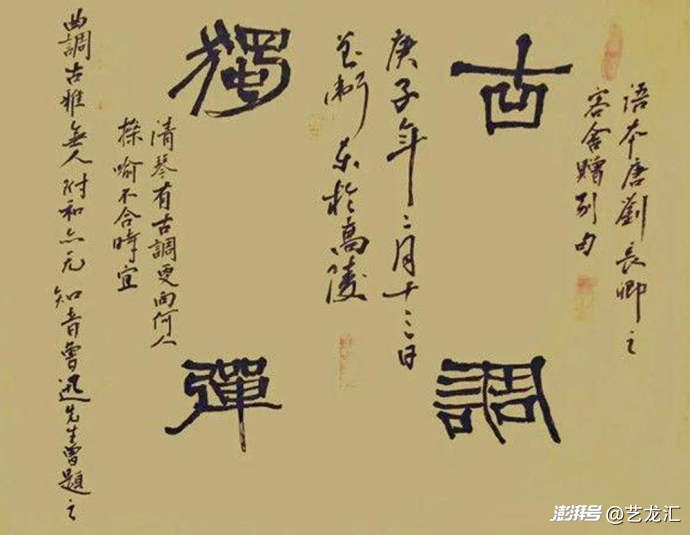 古調
獨彈
語本唐劉長卿之
客舍贈別句
庚子年二月十三日
東於高陵
清琴有古調更向何人
操喻不合時宜
曲調古雅無人附和亦无知音魯迅先生曾題之
澎湃号@艺龙汇